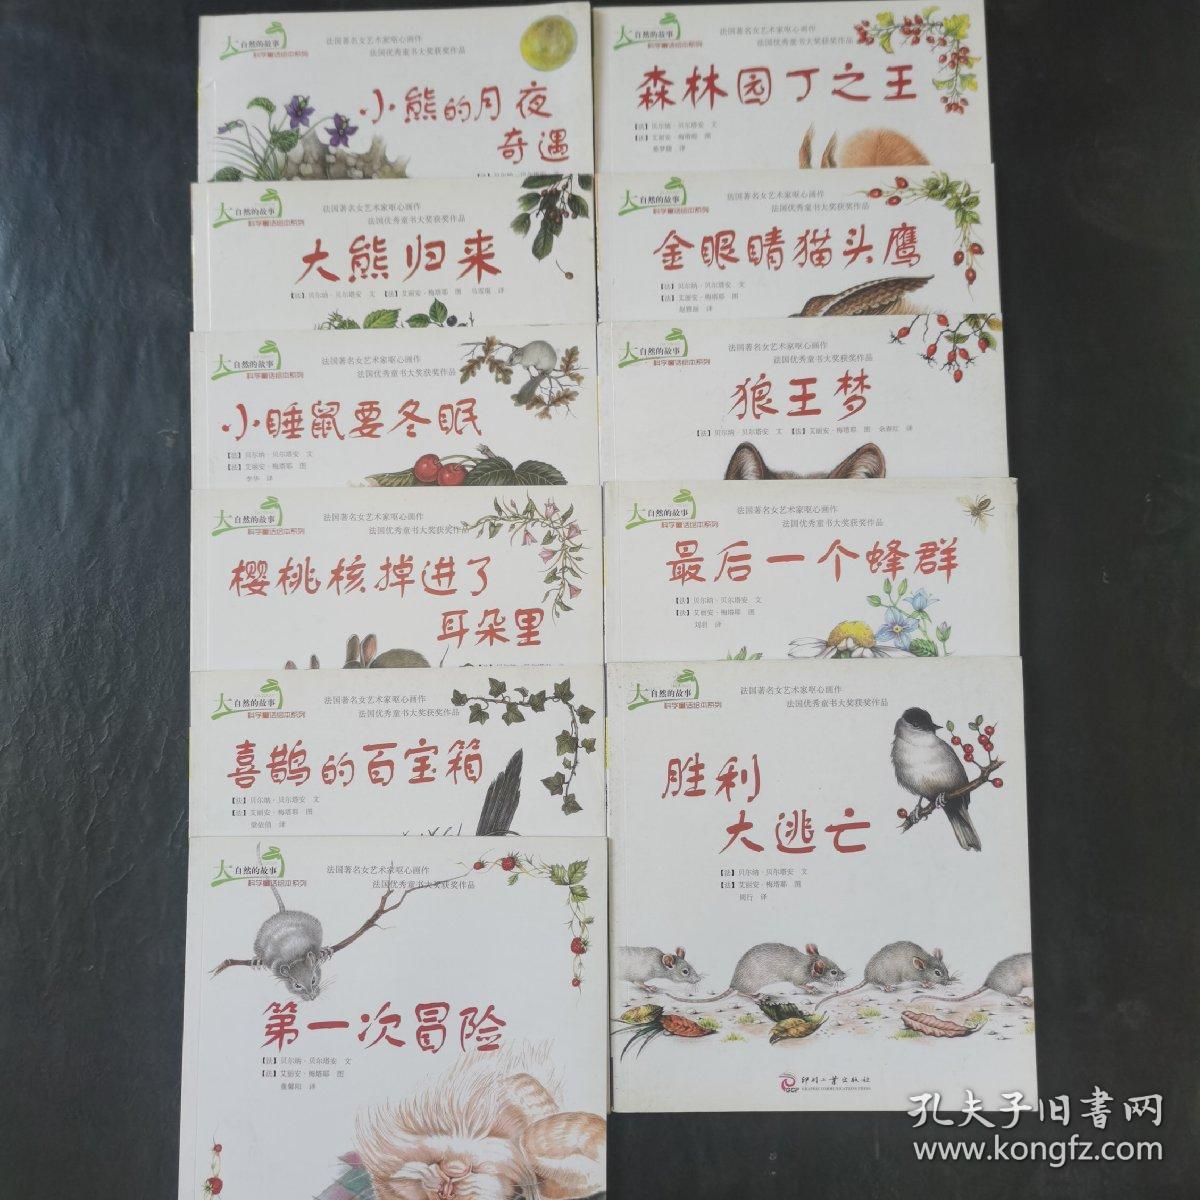 大自然的故事
科学童话绘本系列
法国著名女艺术家呕心画作
法国优秀童书大奖获奖作品
小熊的月夜
奇遇
【法】贝尔纳·贝尔塔安
大自然的故事
科学童话绘本系列
法国著名女艺术家呕心画作
法国优秀童书大奖获奖作品
大熊归来
【法】贝尔纳·贝尔塔安 文 【法】艾丽安·梅塔耶 图 译
大自然的故事
科学童话绘本系列
法国著名女艺术家呕心画作
法国优秀童书大奖获奖作品
小睡鼠要冬眠
【法】贝尔纳·贝尔塔安 文
【法】艾丽安·梅塔耶 图
李华 译
大自然的故事
科学童话绘本系列
法国著名女艺术家呕心画作
法国优秀童书大奖获奖作品
樱桃核掉进了
耳朵里
大自然的故事
科学童话绘本系列
法国著名女艺术家呕心画作
法国优秀童书大奖获奖作品
喜鹊的百宝箱
【法】贝尔纳·贝尔塔安 文
【法】艾丽安·梅塔耶 图
译
大自然的故事
科学童话绘本系列
法国著名女艺术家呕心画作
法国优秀童书大奖获奖作品
第一次冒险
【法】贝尔纳·贝尔塔安 文
【法】艾丽安·梅塔耶 图
董馨阳 译
大自然的故事
科学童话绘本系列
法国著名女艺术家呕心画作
法国优秀童书大奖获奖作品
森林园丁之王
【法】贝尔纳·贝尔塔安 文
【法】艾丽安·梅塔耶 图
译
大自然的故事
科学童话绘本系列
法国著名女艺术家呕心画作
法国优秀童书大奖获奖作品
金眼睛猫头鹰
【法】贝尔纳·贝尔塔安 文
【法】艾丽安·梅塔耶 图
译
大自然的故事
科学童话绘本系列
法国著名女艺术家呕心画作
法国优秀童书大奖获奖作品
狼王梦
【法】贝尔纳·贝尔塔安 文 【法】艾丽安·梅塔耶 图 余春红 译
大自然的故事
科学童话绘本系列
法国著名女艺术家呕心画作
法国优秀童书大奖获奖作品
最后一个蜂群
【法】贝尔纳·贝尔塔安 文
【法】艾丽安·梅塔耶 图
译
大自然的故事
科学童话绘本系列
法国著名女艺术家呕心画作
法国优秀童书大奖获奖作品
胜利
大逃亡
【法】贝尔纳·贝尔塔安 文
【法】艾丽安·梅塔耶 图
周行 译
印刷工业出版社
GRAPHIC COMMUNICATIONS PRESS
GCP
孔夫子旧书网
www.kongfz.com